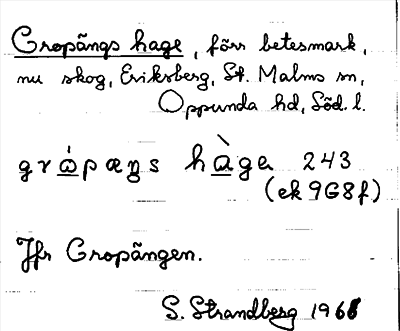 Gropängs hage, förr betesmark,
nu skog, Eriksberg, St. Malms sn,
Oppunda hd, Söd. l.
grɷ̀pæŋs hàga 243
(ek 9G8f)
Jfr Gropängen.
S. Strandberg 1966